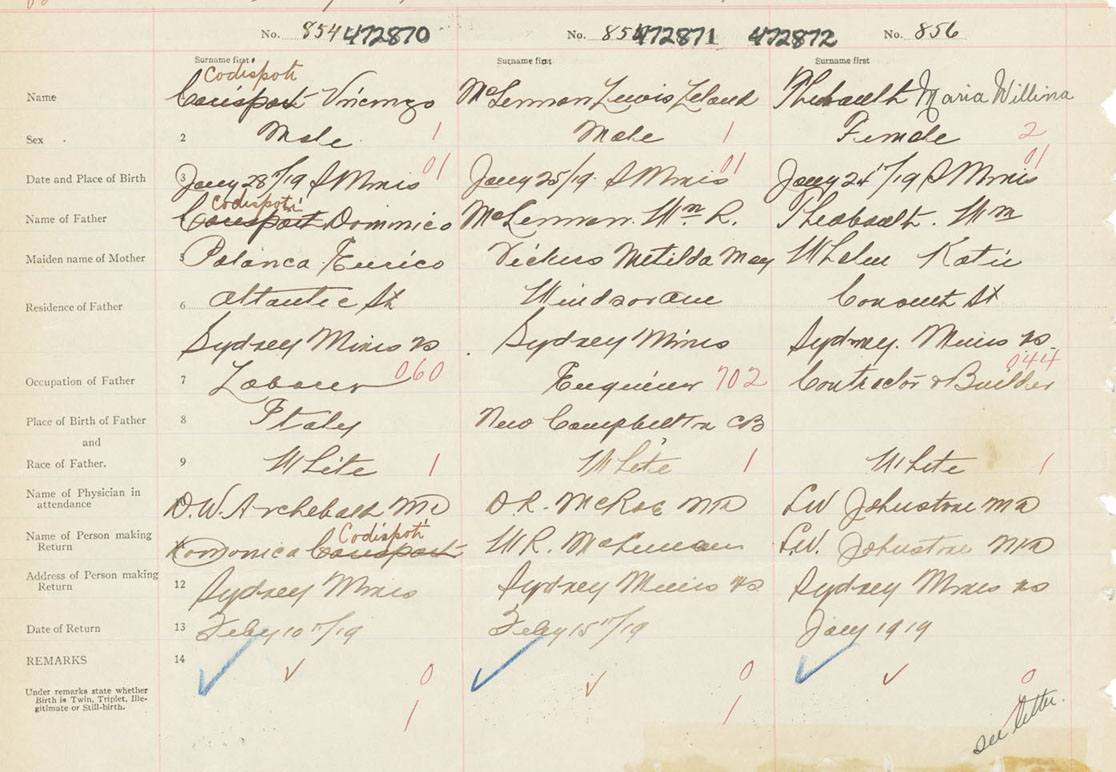 No. 854 472870 No. 855 472871 472872 No. 856
Surname first Surname first Surname first
Codispoti
Name Vincenzo McLennan Lewis Leland Thebault Maria Willina
Sex 2 Male 1 Male 1 Female 2
01 01 01
Date and Place of Birth 3 Jany 28th/19 S Mines Jany 25/19 S Mines Jany 24th/19 S Mines
Codispoti
Name of Father Dominico McLennan. Wm R. Theabault. Wm
Maiden name of Mother 5 Polanca Vickers Matilda May Whelen Katie
Residence of Father 6 Atlantic St Windsor Ave Convent St
Sydney Mines NS Sydney Mines Sydney. Mines NS.
Occupation of Father 7 Laborer 060 702 Contractor & Builder 044
Place of Birth of Father 8 Italy New Campbellton CB
and
Race of Father. 9 White 1 White 1 White 1
Name of Physician in
attendance D.W. Archibald MD D.R. McRae MD LW Johnstone MD
Codispoti
Name of Person making
Return W R. McLennan LW. Johnstone MD
Address of Person making
Return 12 Sydney Mines Sydney Mines NS Sydney Mines NS
Date of Return 13 Feby 10th/19 Feby 15th/19 Jany 1919
REMARKS 14
0 0 0
Under remarks state whether
Birth is Twin, Triplet, Ille-
gitimate or Still-birth.
1 1 1
see letter.